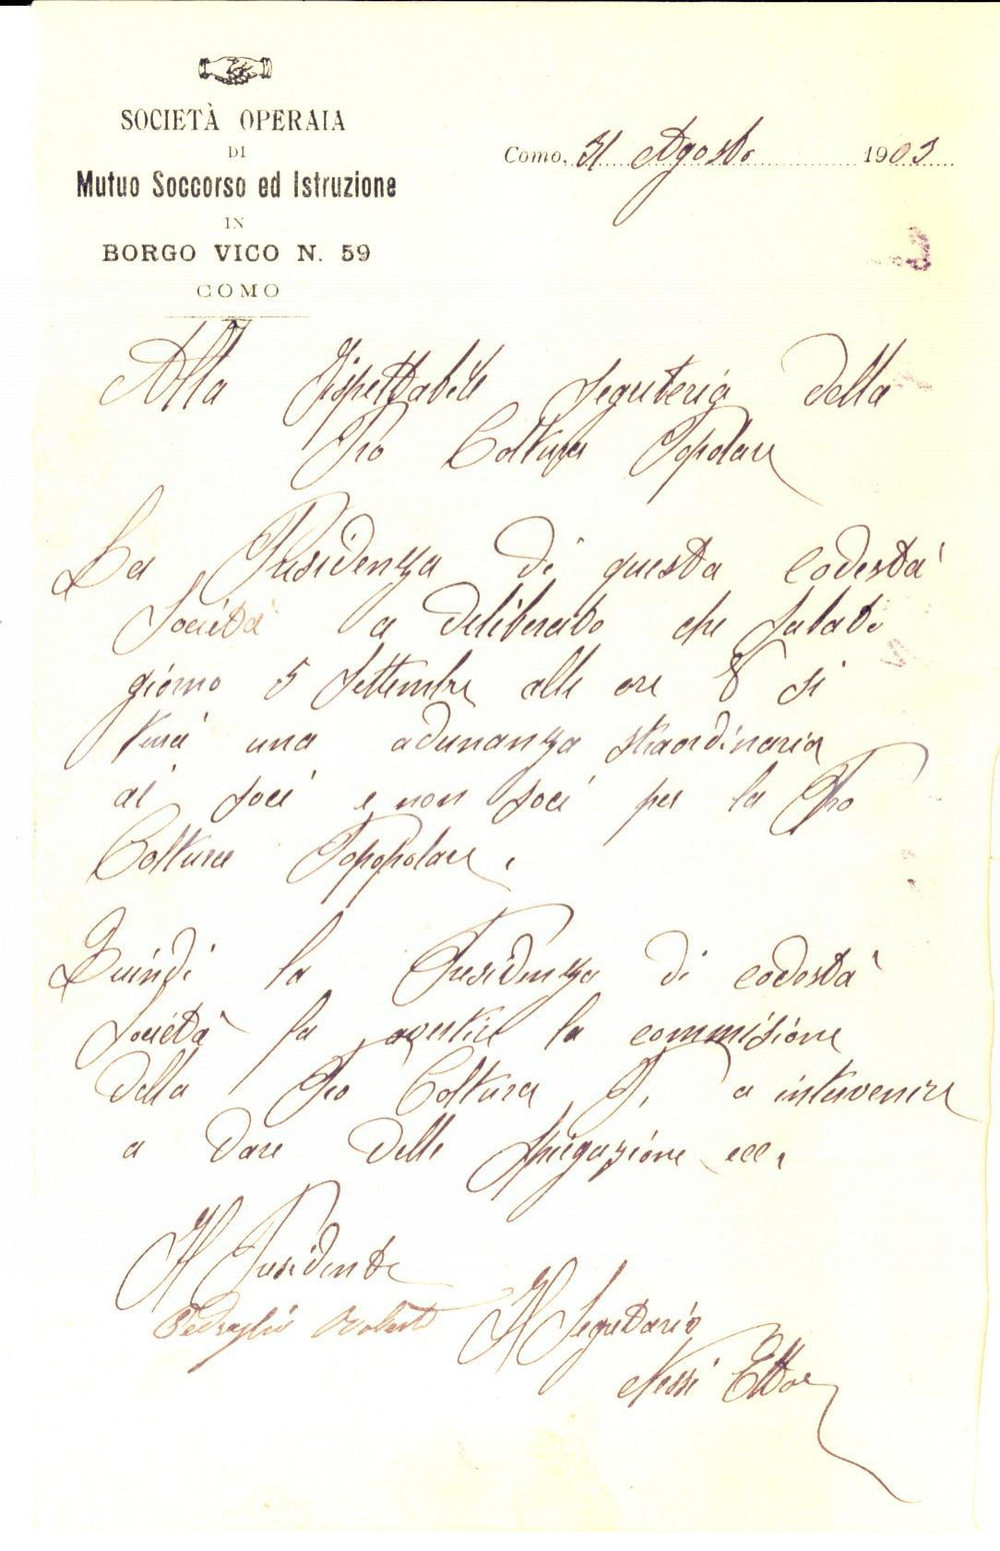 SOCIETÀ OPERAIA
DI
Mutuo Soccorso ed Istruzione
IN
BORGO VICO N. 59
COMO
Como, 31 Agosto 1903
Alla Rispettabile Segreteria della
Pro Coltura Popolare
La Presidenza di questa codestà
Società a deliberato che Sabato
giorno 5 Settembre alle ore 8 si
terrà una adunanza straordinaria
ai soci e non soci per la Pro
Coltura Popopolare.
Quindi la Presidenza di codestà
Società fa avertire la commisione
della Pro Coltura P. a intervenire
a dare delle spiegazione ecc.
Il Presidente
Pedraglio
Il Segretario
Nessi Ettore